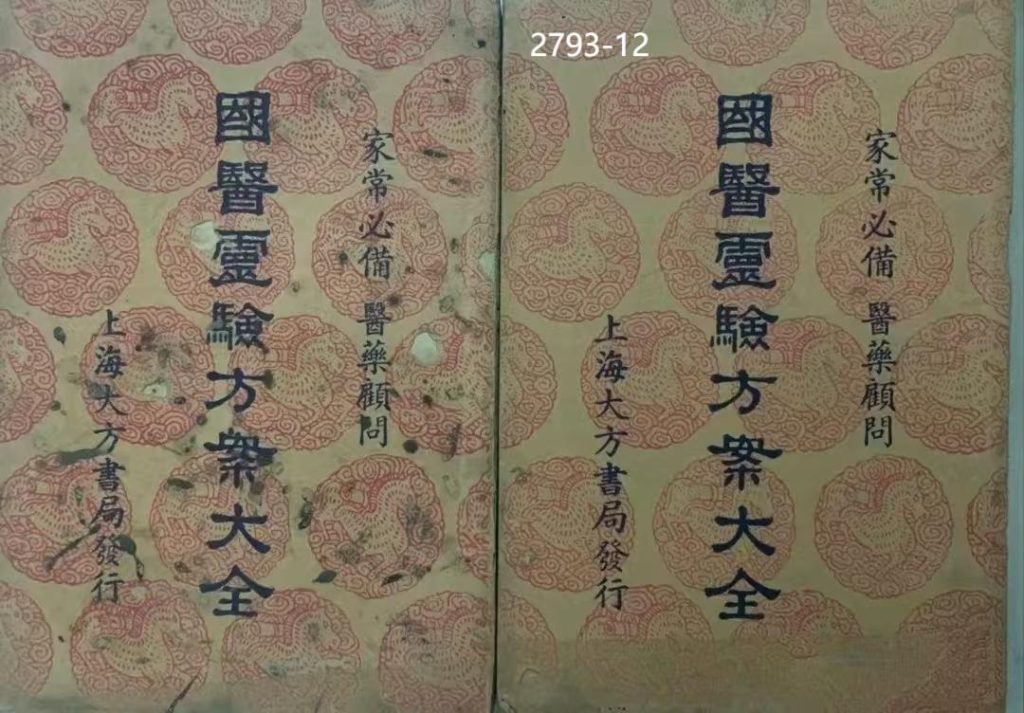 家常必備 醫藥顧問
國醫靈驗方案大全
上海大方書局發行
2793-12
家常必備 醫藥顧問
國醫靈驗方案大全
上海大方書局發行